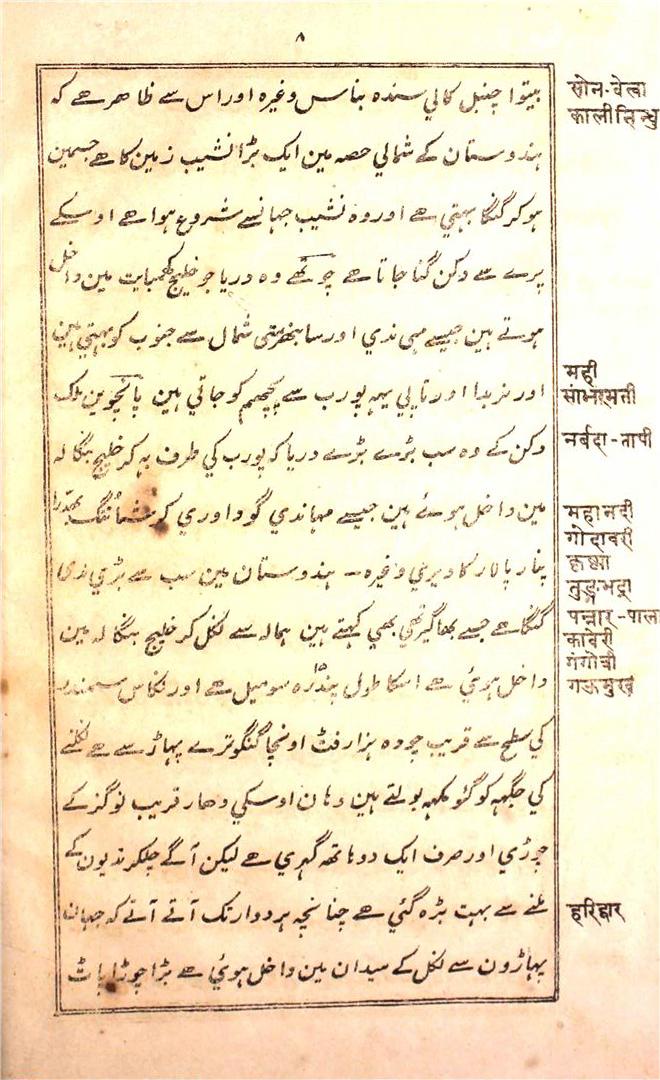 ۸
بیتوا چنبل کالي سنده بناس وغیره اور اس سے ظاهر هے که
هندوستان کے شمالي حصه مین ایک بڑا نشیب زمین کا هے جسمین
هوکر گنگا بهتي هے اور وه نشیب جهانسے شروع هوا هے اوسکے
پرے سے دکن گنا جاتا هے چوتھے وه دریا جو خلیج کھمبایت مین داخل
هوتے هین جیسے مهي ندي اور سابھرمتی شمال سے جنوب کو بهتي هین
اور نربدا اور تاپي یهه پورب سے پچھم کو جاتي هین پانچوین ملک
دکن کے وه سب بڑے بڑے دریا که پورب کي طرف به کر خلیج بنگاله
مین داخل هوئے هین جیسے مهاندي گوداوري کرشنا تنگ بھدرا
پنار پالار کاویري وغیره - هندوستان مین سب سے بڑي ندي
گنگا هے جسے بھاگیرتھي بھي کهتے هین هماله سے نکل کر خلیج بنگاله مین
داخل هوئي هے اسکا طول پندره سو میل هے اور نکاس سمندر
کي سطح سے قریب چوده هزار فٹ اونچا گنگوترے پهاڑ سے هے نکلنے
کي جگهه کو گئو مکهه بولتے هین وهان اوسکي دھار قریب نو گز کے
چوڑي اور صرف ایک دو هاتھه گهري هے لیکن آگے چلکر ندیون کے
ملنے سے بهت بڑه گئي هے چنانچه هردوار تک آتے آتے که جهان
پهاڑون سے نکل کے میدان مین داخل هوئي هے بڑا چوڑا پاٹ
सोन-वेत्वा
कालीसिन्धु
मही
सांभरमती
नर्बदा-तापी
महानदी
गोदावरी
कृष्णा
तुङ्गभद्रा
पन्नार-पाला
कावेरी
गंगोत्री
गऊमुख
हरिद्वार